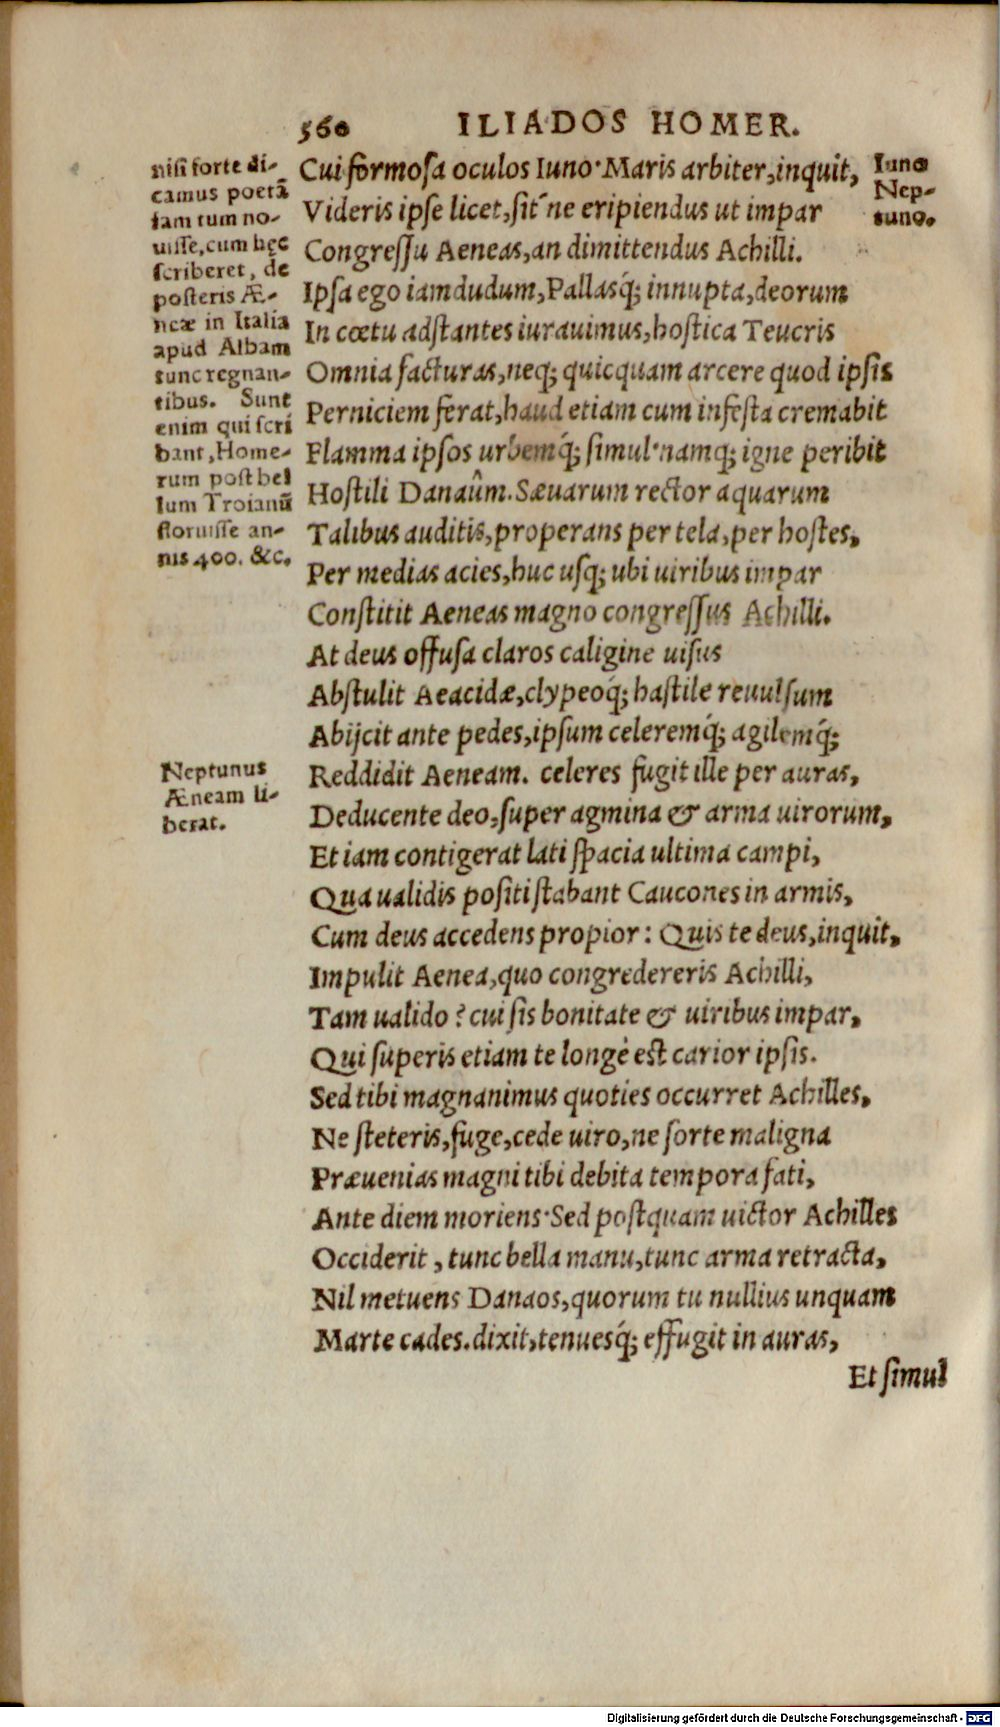 560 ILIADOS HOMER.
nisi forte di-
camus poetã
iam tum no-
uisse, cum hęc
scriberet, de
posteris Æ-
neæ in Italia
apud Albam
tunc regnan-
tibus. Sunt
enim qui scri
bant, Home-
rum post bel
lum Troianũ
floruisse an-
nis 400. &c.
Cui formosa oculos Iuno· Maris arbiter, inquit,
Videris ipse licet, sit´ne eripiendus ut impar
Congressu Aeneas, an dimittendus Achilli.
Ipsa ego iamdudum, Pallasq́; innupta, deorum
In cœtu adstantes iurauimus, hostica Teucris
Omnia facturas, neq; quicquam arcere quod ipsis
Perniciem ferat, haud etiam cum infesta cremabit
Flamma ipsos urbemq́; simul· namq; igne peribit
Hostili Danaûm. Sæuarum rector aquarum
Talibus auditis, properans per tela, per hostes,
Per medias acies, huc usq; ubi uiribus impar
Constitit Aeneas magno congressus Achilli.
At deus offusa claros caligine uisus
Abstulit Aeacidæ, clypeoq́; hastile reuulsum
Abijcit ante pedes, ipsum celeremq́; agilemq́;
Reddidit Aeneam. celeres fugit ille per auras,
Deducente deo, super agmina & arma uirorum,
Et iam contigerat lati spacia ultima campi,
Qua ualidis positi stabant Caucones in armis,
Cum deus accedens propior: Quis te deus, inquit,
Impulit Aenea, quo congredereris Achilli,
Tam ualido? cui sis bonitate & uiribus impar,
Qui superis etiam te longè est carior ipsis.
Sed tibi magnanimus quoties occurret Achilles,
Ne steteris, fuge, cede uiro, ne sorte maligna
Præuenias magni tibi debita tempora fati,
Ante diem moriens· Sed postquam uictor Achilles
Occiderit, tunc bella manu, tunc arma retracta,
Nil metuens Danaos, quorum tu nullius unquam
Marte cades. dixit, tenuesq́; effugit in auras,
Et simul
Iuno
Nep-
tuno.
Neptunus
Æneam li-
berat.
Digitalisierung gefördert durch die Deutsche Forschungsgemeinschaft - DFG